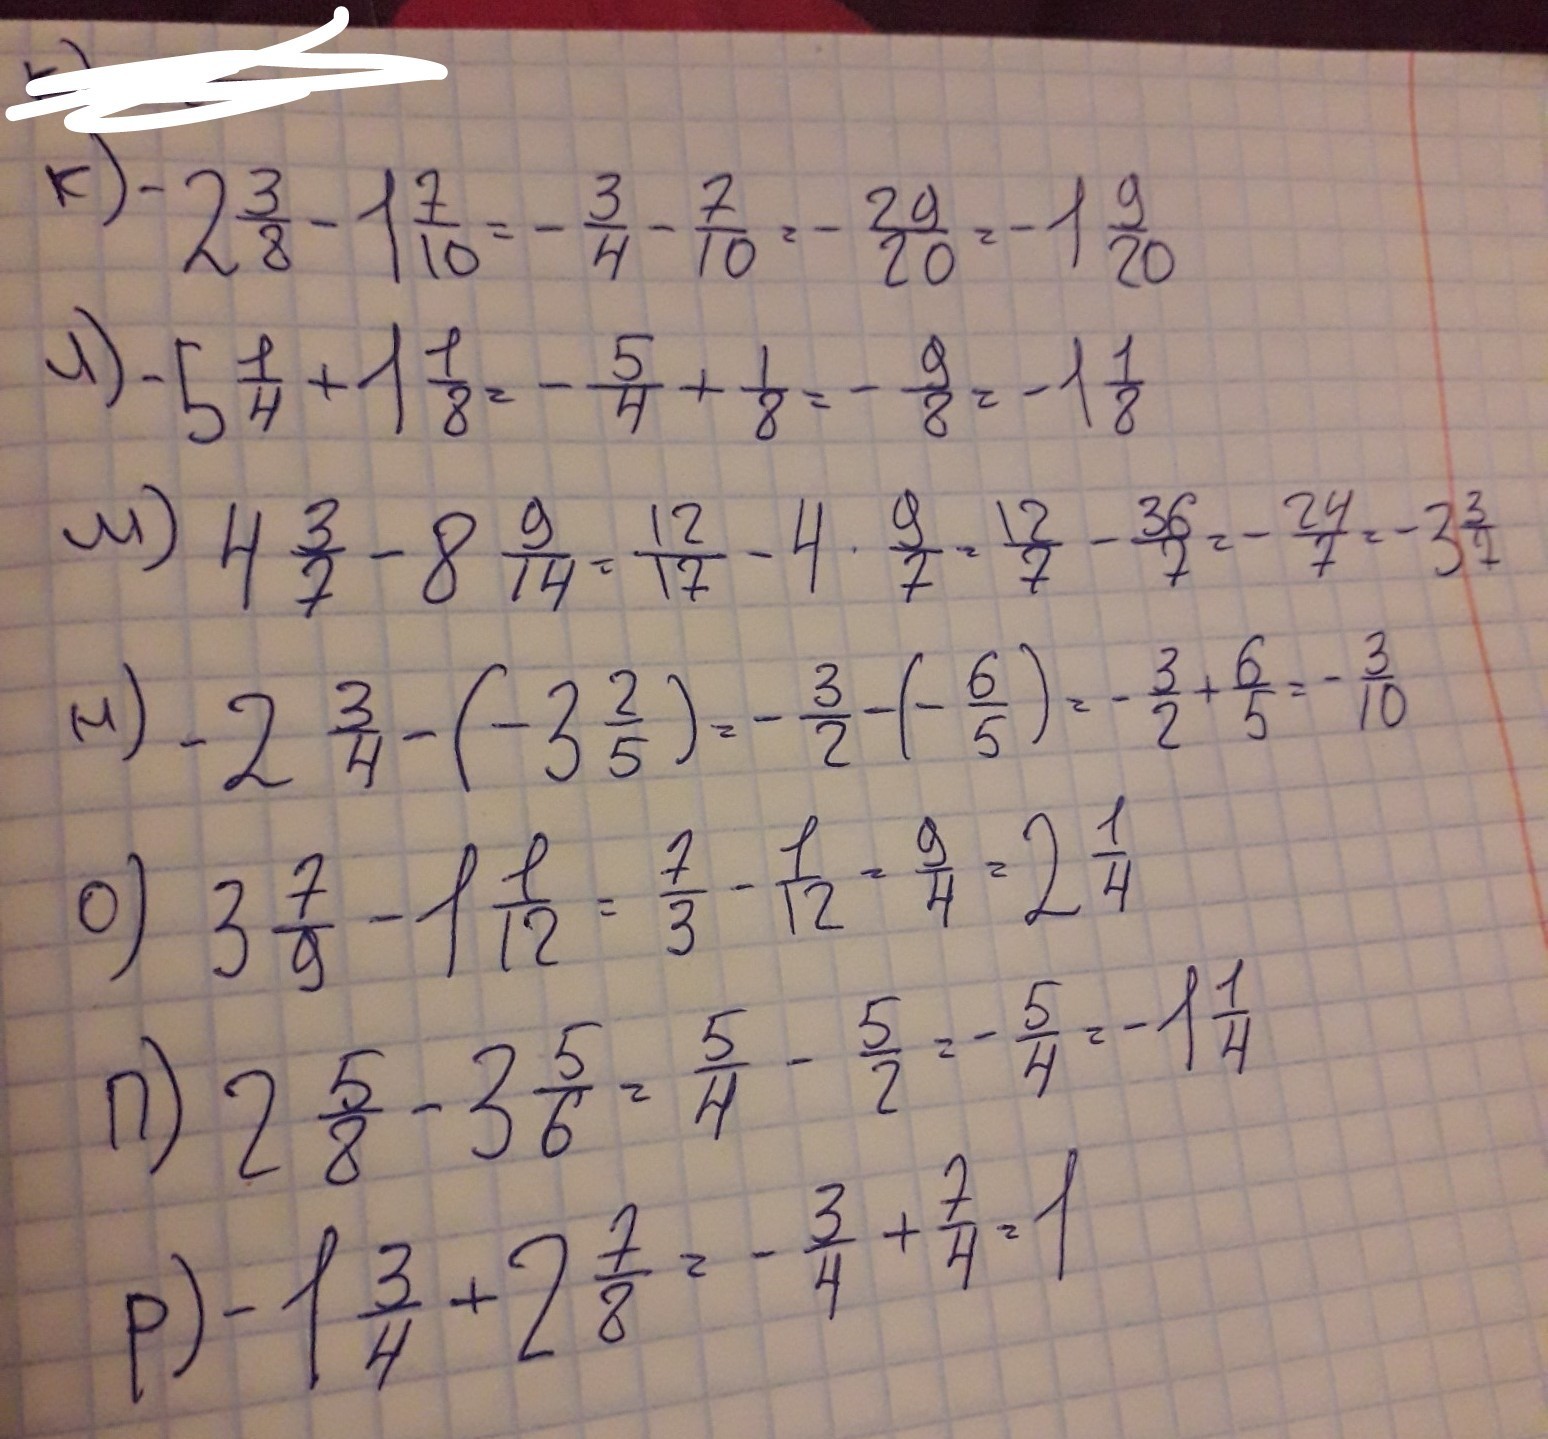 к) -2 3/8 - 1 7/10 = - 3/4 - 7/10 = - 29/20 = -1 9/20
л) -5 1/4 + 1 1/8 = - 5/4 + 1/8 = - 9/8 = -1 1/8
м) 4 3/7 - 8 9/14 = 12/17 - 4 · 9/7 = 12/7 - 36/7 = - 24/7 = -3 3/7
н) -2 3/4 - (-3 2/5) = - 3/2 - (- 6/5) = - 3/2 + 6/5 = - 3/10
о) 3 7/9 - 1 1/12 = 7/3 - 1/12 = 9/4 = 2 1/4
п) 2 5/8 - 3 5/6 = 5/4 - 5/2 = - 5/4 = -1 1/4
р) -1 3/4 + 2 7/8 = - 3/4 + 7/4 = 1